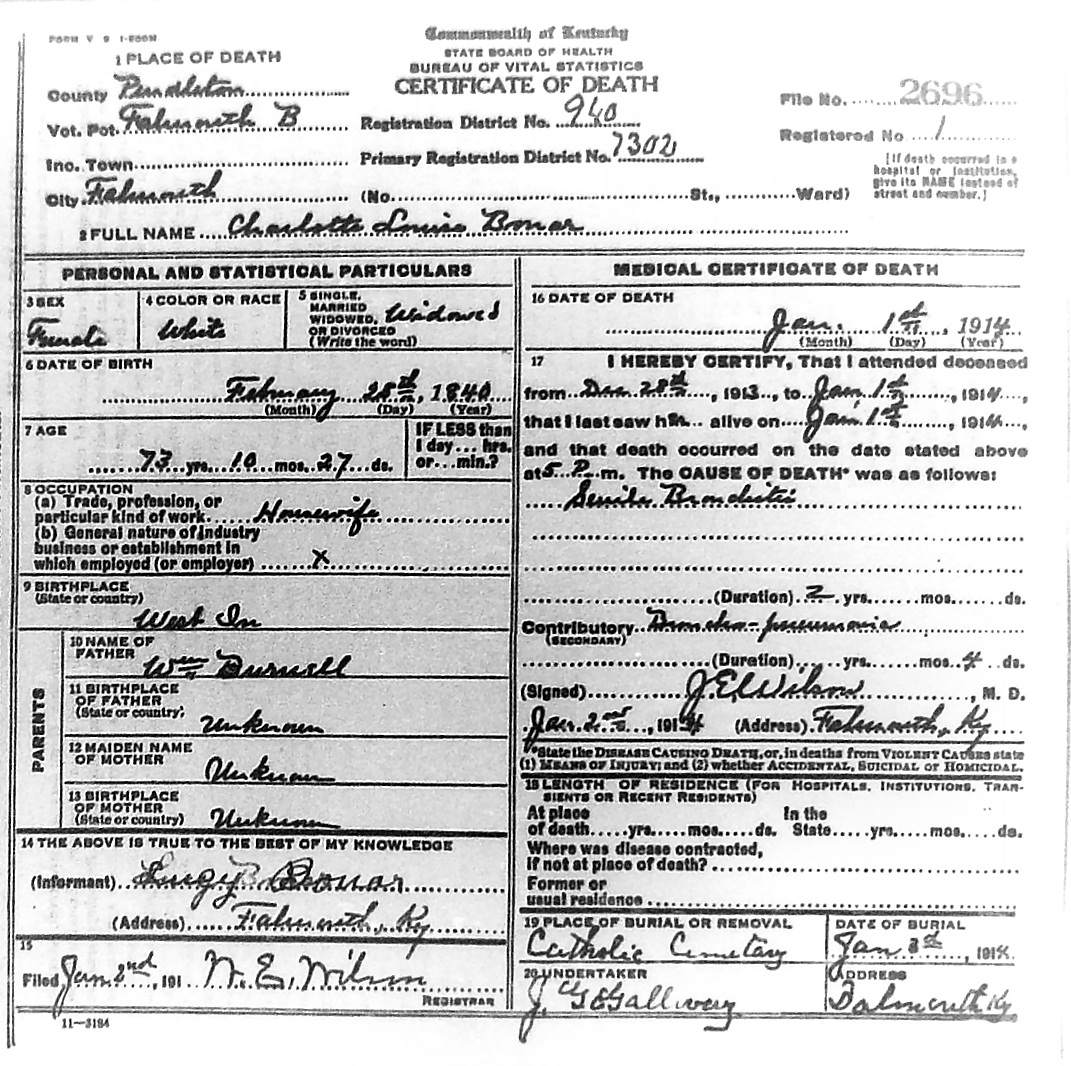 FORM V S 1-500M
Commonwealth of Kentucky
STATE BOARD OF HEALTH
BUREAU OF VITAL STATISTICS
CERTIFICATE OF DEATH
1 PLACE OF DEATH
County Pendleton
Vot. Pct. Falmouth B
Inc. Town
City Falmouth (No. St., Ward)
Registration District No. 940
Primary Registration District No. 7302
File No. 2696
Registered No 1
[If death occurred in a hospital or institution, give its NAME instead of street and number.]
2 FULL NAME Charlotte Louise Bonar
PERSONAL AND STATISTICAL PARTICULARS
3 SEX
Female
4 COLOR OR RACE
White
5 SINGLE, MARRIED WIDOWED, OR DIVORCED (Write the word)
Widowed
6 DATE OF BIRTH
February 28th, 1840
(Month) (Day) (Year)
7 AGE
73 yrs. 10 mos. 27 ds.
IF LESS than 1 day... hrs. or... min.?
8 OCCUPATION
(a) Trade, profession, or
particular kind of work. Housewife
(b) General nature of industry
business or establishment in
which employed (or employer) x
9 BIRTHPLACE
(State or country)
West In
PARENTS
10 NAME OF FATHER
Wm Burnell
11 BIRTHPLACE OF FATHER (State or country)
Unknown
12 MAIDEN NAME OF MOTHER
Unknown
13 BIRTHPLACE OF MOTHER (State or country)
Unknown
14 THE ABOVE IS TRUE TO THE BEST OF MY KNOWLEDGE
(Informant) Bonar
(Address) Falmouth, Ky
15
Filed Jan 2nd, 191 W. E. Wilson
REGISTRAR
11-3184
MEDICAL CERTIFICATE OF DEATH
16 DATE OF DEATH
Jan. 1st, 1914
(Month) (Day) (Year)
17 I HEREBY CERTIFY, That I attended deceased
from Dec 28th, 1913, to Jan. 1st, 1914,
that I last saw her alive on Jan. 1st, 1914,
and that death occurred on the date stated above
at 5 P. m. The CAUSE OF DEATH* was as follows:
Senile Bronchitis
(Duration) 2 yrs. mos. ds.
Contributory Broncho-pneumonia
(SECONDARY)
(Duration) yrs. mos. 4 ds.
(Signed) Wilson, M. D.
Jan. 2nd, 1914 (Address) Falmouth, Ky
*State the DISEASE CAUSING DEATH, or, in deaths from VIOLENT CAUSES state
(1) MEANS OF INJURY; and (2) whether ACCIDENTAL, SUICIDAL or HOMICIDAL.
18 LENGTH OF RESIDENCE (FOR HOSPITALS, INSTITUTIONS, TRAN-
SIENTS OR RECENT RESIDENTS)
At place of death yrs. mos. ds. In the State yrs. mos. ds.
Where was disease contracted,
if not at place of death?
Former or
usual residence
19 PLACE OF BURIAL OR REMOVAL
Catholic Cemetery
DATE OF BURIAL
Jan 3rd, 1914
20 UNDERTAKER
ADDRESS
Falmouth Ky